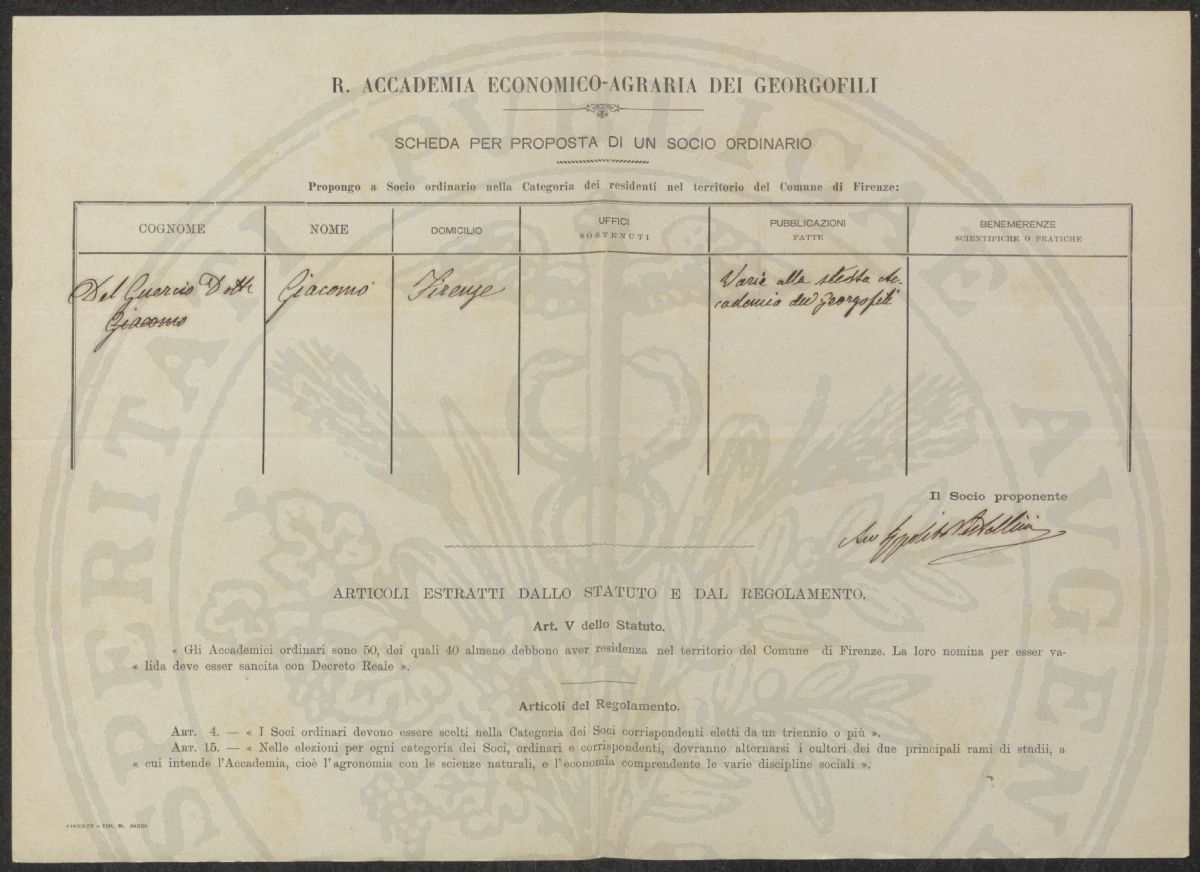 R. ACCADEMIA ECONOMICO-AGRARIA DEI GEORGOFILI
SCHEDA PER PROPOSTA DI UN SOCIO ORDINARIO
Propongo a Socio ordinario nella Categoria dei residenti nel territorio del Comune di Firenze:
COGNOME
NOME
DOMICILIO
UFFICI
SOSTENUTI
PUBBLICAZIONI
FATTE
BENEMERENZE
SCIENTIFICHE O PRATICHE
Del Guercio Dott.
Giacomo
Giacomo
Firenze
Varie alla stessa Ac-
cademia dei georgofili
Il Socio proponente
Ippolito
ARTICOLI ESTRATTI DALLO STATUTO E DAL REGOLAMENTO.
Art. V dello Statuto.
« Gli Accademici ordinari sono 50, dei quali 40 almeno debbono aver residenza nel territorio del Comune di Firenze. La loro nomina per esser va-
« lida deve esser sancita con Decreto Reale ».
Articoli del Regolamento.
ART. 4. — « I Soci ordinari devono essere scelti nella Categoria dei Soci corrispondenti eletti da un triennio o più ».
ART. 15. — « Nelle elezioni per ogni categoria dei Soci, ordinari e corrispondenti, dovranno alternarsi i cultori dei due principali rami di studii, a
« cui intende l'Accademia, cioè l'agronomia con le scienze naturali, e l'economia comprendente le varie discipline sociali ».
FIRENZE - TIP. M. RICCI
PROSPERITATI PUBLICAE AUGENDAE